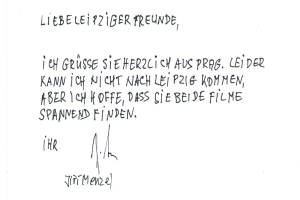 LIEBE LEIPZIGER FREUNDE,
ICH GRÜSSE SIE HERZLICH AUS PRAG. LEIDER
KANN ICH NICHT NACH LEIPZIG KOMMEN,
ABER ICH HOFFE, DASS SIE BEIDE FILME
SPANNEND FINDEN.
IHR
Jiří Menzel